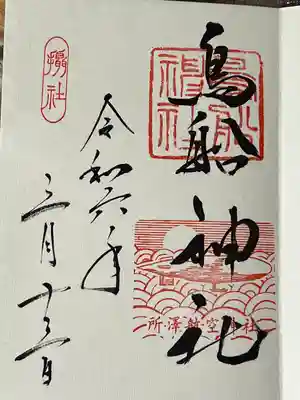 鳥船神社
鳥船神社
所澤航空神社
令和六年
三月十三日
摂社